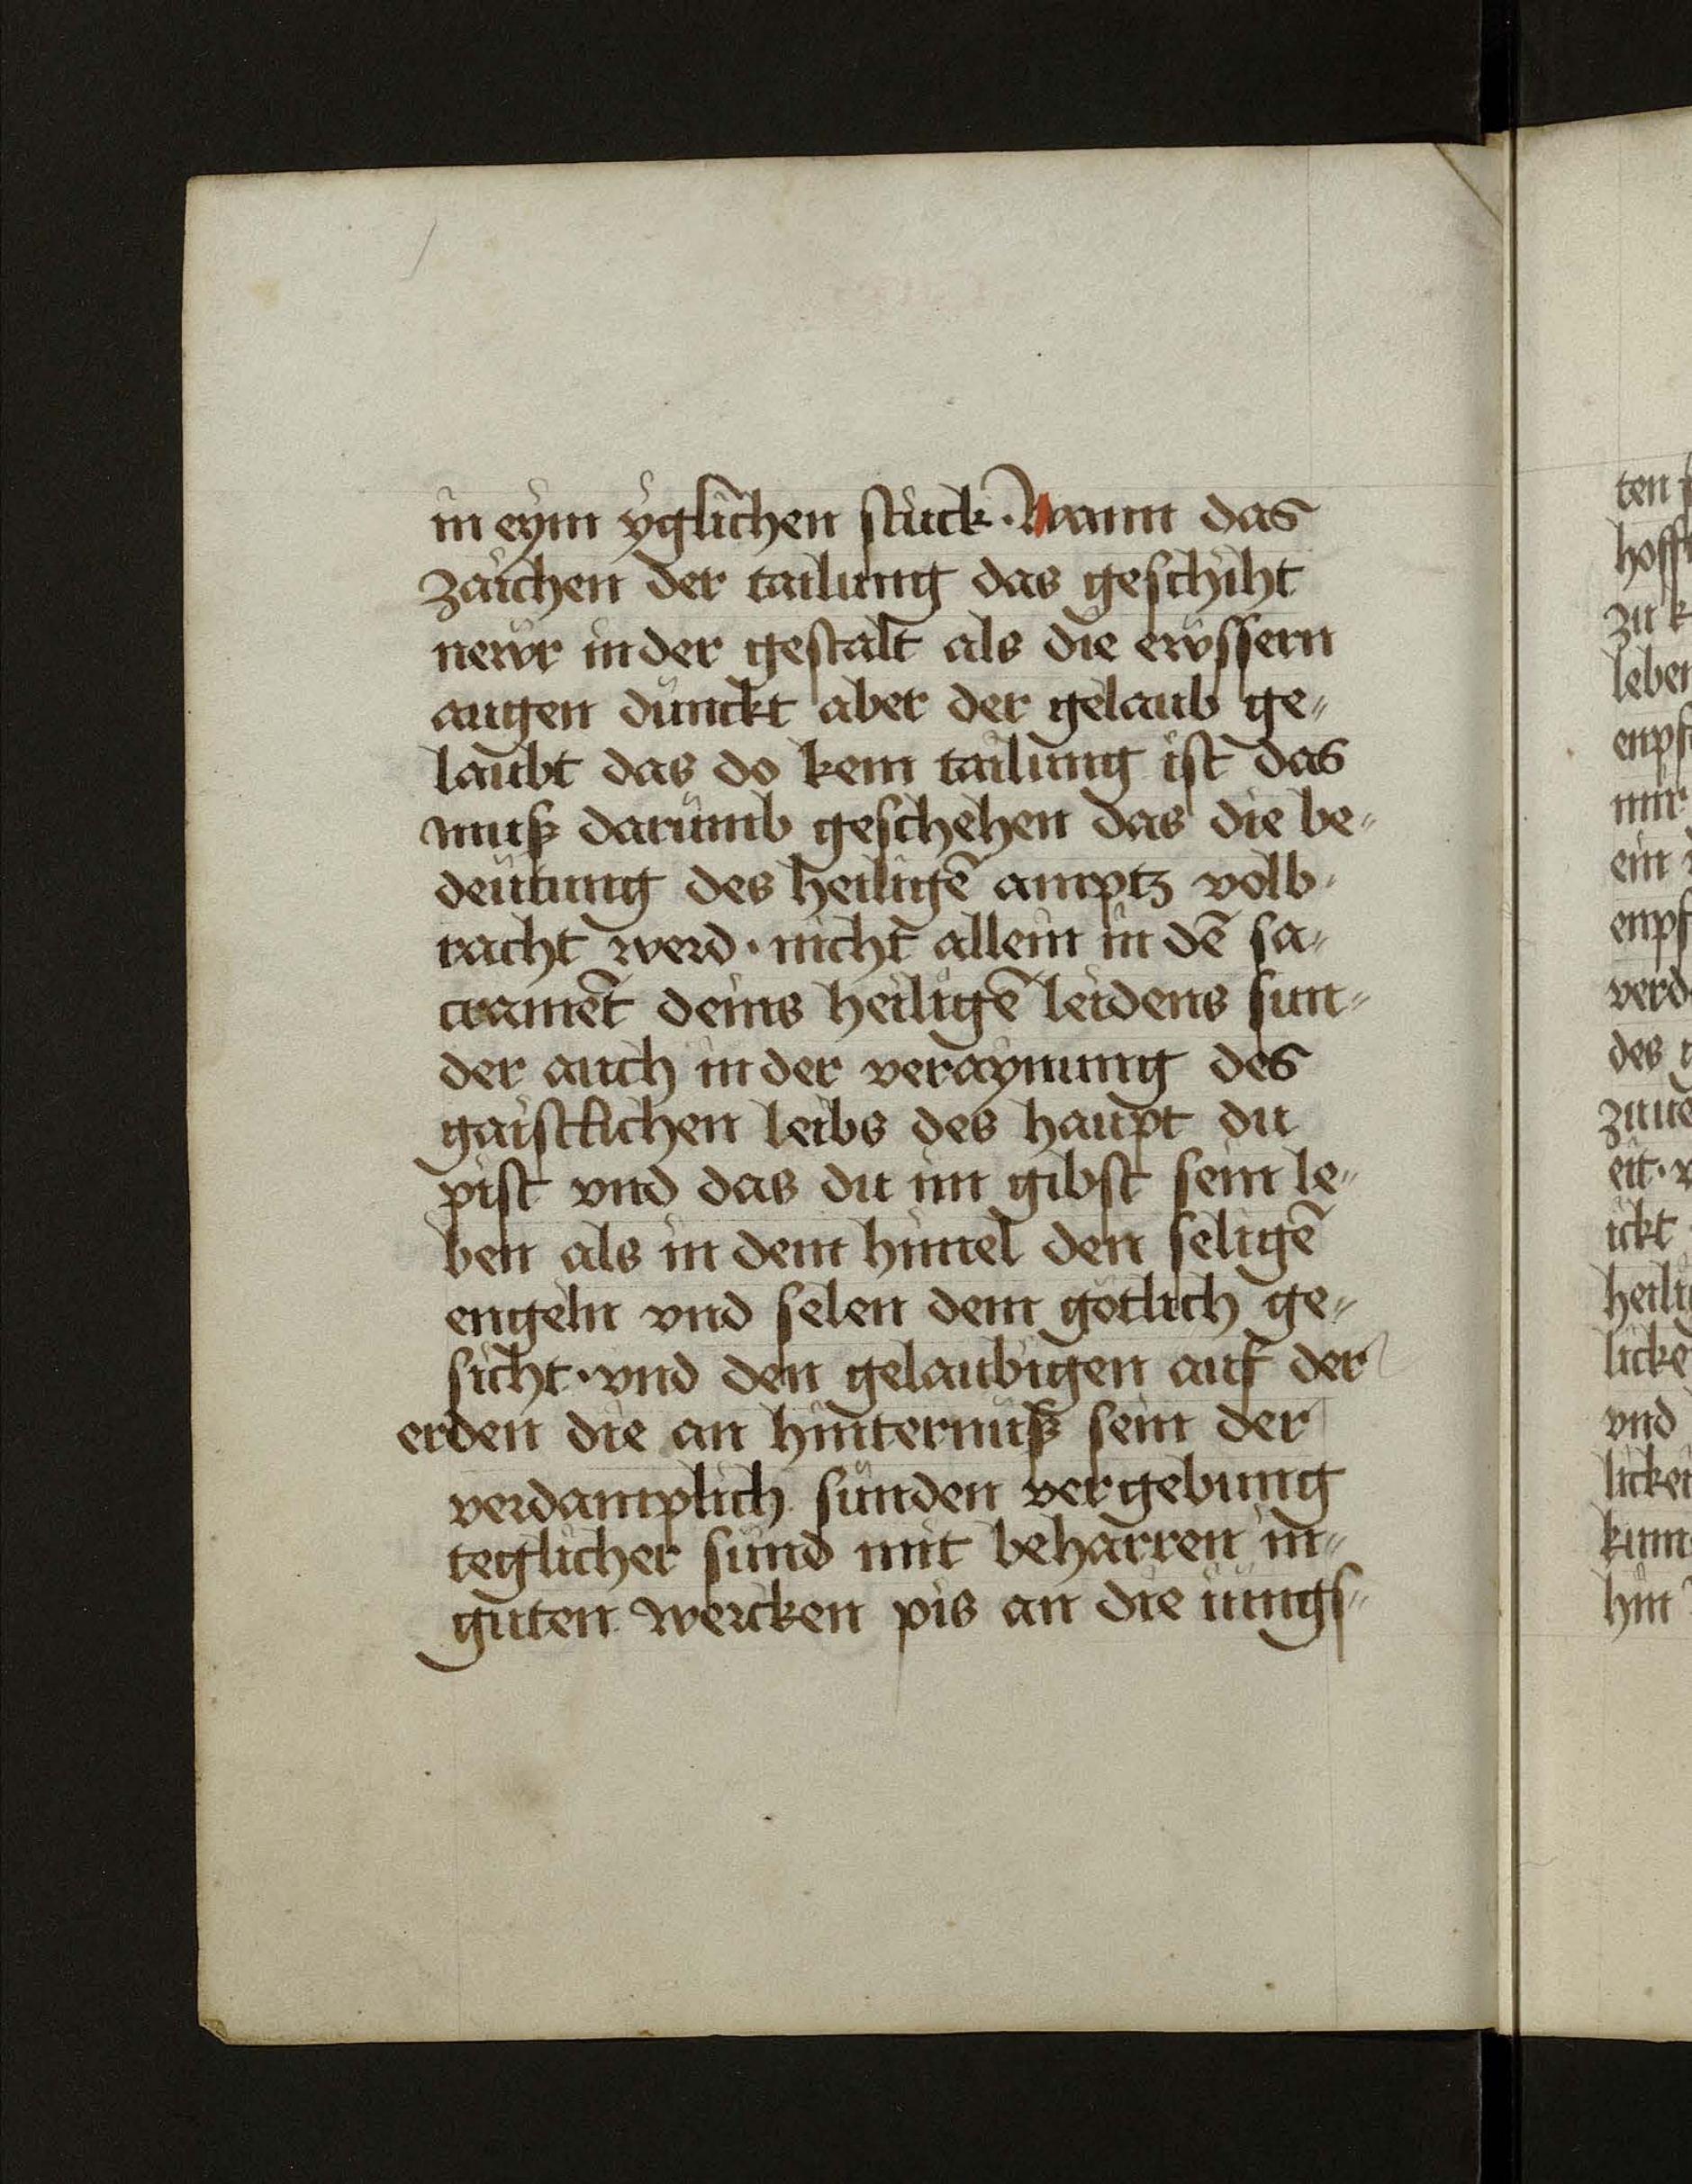 in eym yglichen stuck · Wann das
zaichen der tailung das geschiht
newr in der gestalt als die ewssern
augen dunckt aber der gelaub ge⸗
laubt das do kein tailung ist das
muß darumb geschehen das die be⸗
deutung des heiligē amptz volb⸗
racht werd · nicht allein in dē sa⸗
cramēt deins heiligē leidens sun⸗
der auch in der veraynung des
gaistlichen leibs des haupt du
pist vnd das du im gibst sein le⸗
ben als in dem himel den seligē
engeln vnd selen dem götlich ge⸗
sicht · vnd den gelaubigen auf der
erden die an hinternuß sein der
verdamplich sünden vergebung
teglicher sünd mit beharren in⸗
guten wercken pis an die iungs⸗
ten
hoff
zu k
leben
enpf
mir
ein
enpf
verd
des
eit · v
ickt
heilig
licke
vnd
licken
kum
hin